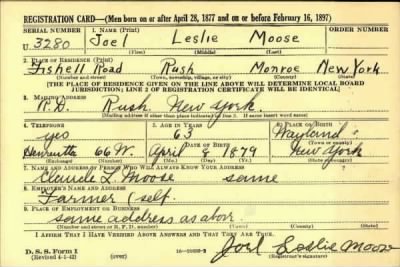 REGISTRATION CARD—(Men born on or after April 28, 1877 and on or before February 16, 1897)
SERIAL NUMBER 1. NAME (Print) ORDER NUMBER
U 3280 Joel Leslie Moose
(First) (Middle) (Last)
2. PLACE OF RESIDENCE (Print)
Fishell Road Rush Monroe New York
(Number and street) (Town, township, village, or city) (County) (State)
[THE PLACE OF RESIDENCE GIVEN ON THE LINE ABOVE WILL DETERMINE LOCAL BOARD
JURISDICTION; LINE 2 OF REGISTRATION CERTIFICATE WILL BE IDENTICAL]
3. MAILING ADDRESS
R.D. Rush, New York.
[Mailing address if other than place indicated on line 2. If same insert word same]
4. TELEPHONE 5. AGE IN YEARS 6. PLACE OF BIRTH
yes 63 Wayland
DATE OF BIRTH (Town or county)
Henrietta 66 W. April 8 1879 New York
(Exchange) (Number) (Mo.) (Day) (Yr.) (State or country)
7. NAME AND ADDRESS OF PERSON WHO WILL ALWAYS KNOW YOUR ADDRESS
Claude L. Moose same
8. EMPLOYER'S NAME AND ADDRESS
Farmer (self.
9. PLACE OF EMPLOYMENT OR BUSINESS
same address as above.
(Number and street or R. F. D. number) (Town) (County) (State)
I AFFIRM THAT I HAVE VERIFIED ABOVE ANSWERS AND THAT THEY ARE TRUE.
D. S. S. Form 1 Joel Leslie Moose
(Revised 4-1-42) (over) (Registrant's signature)